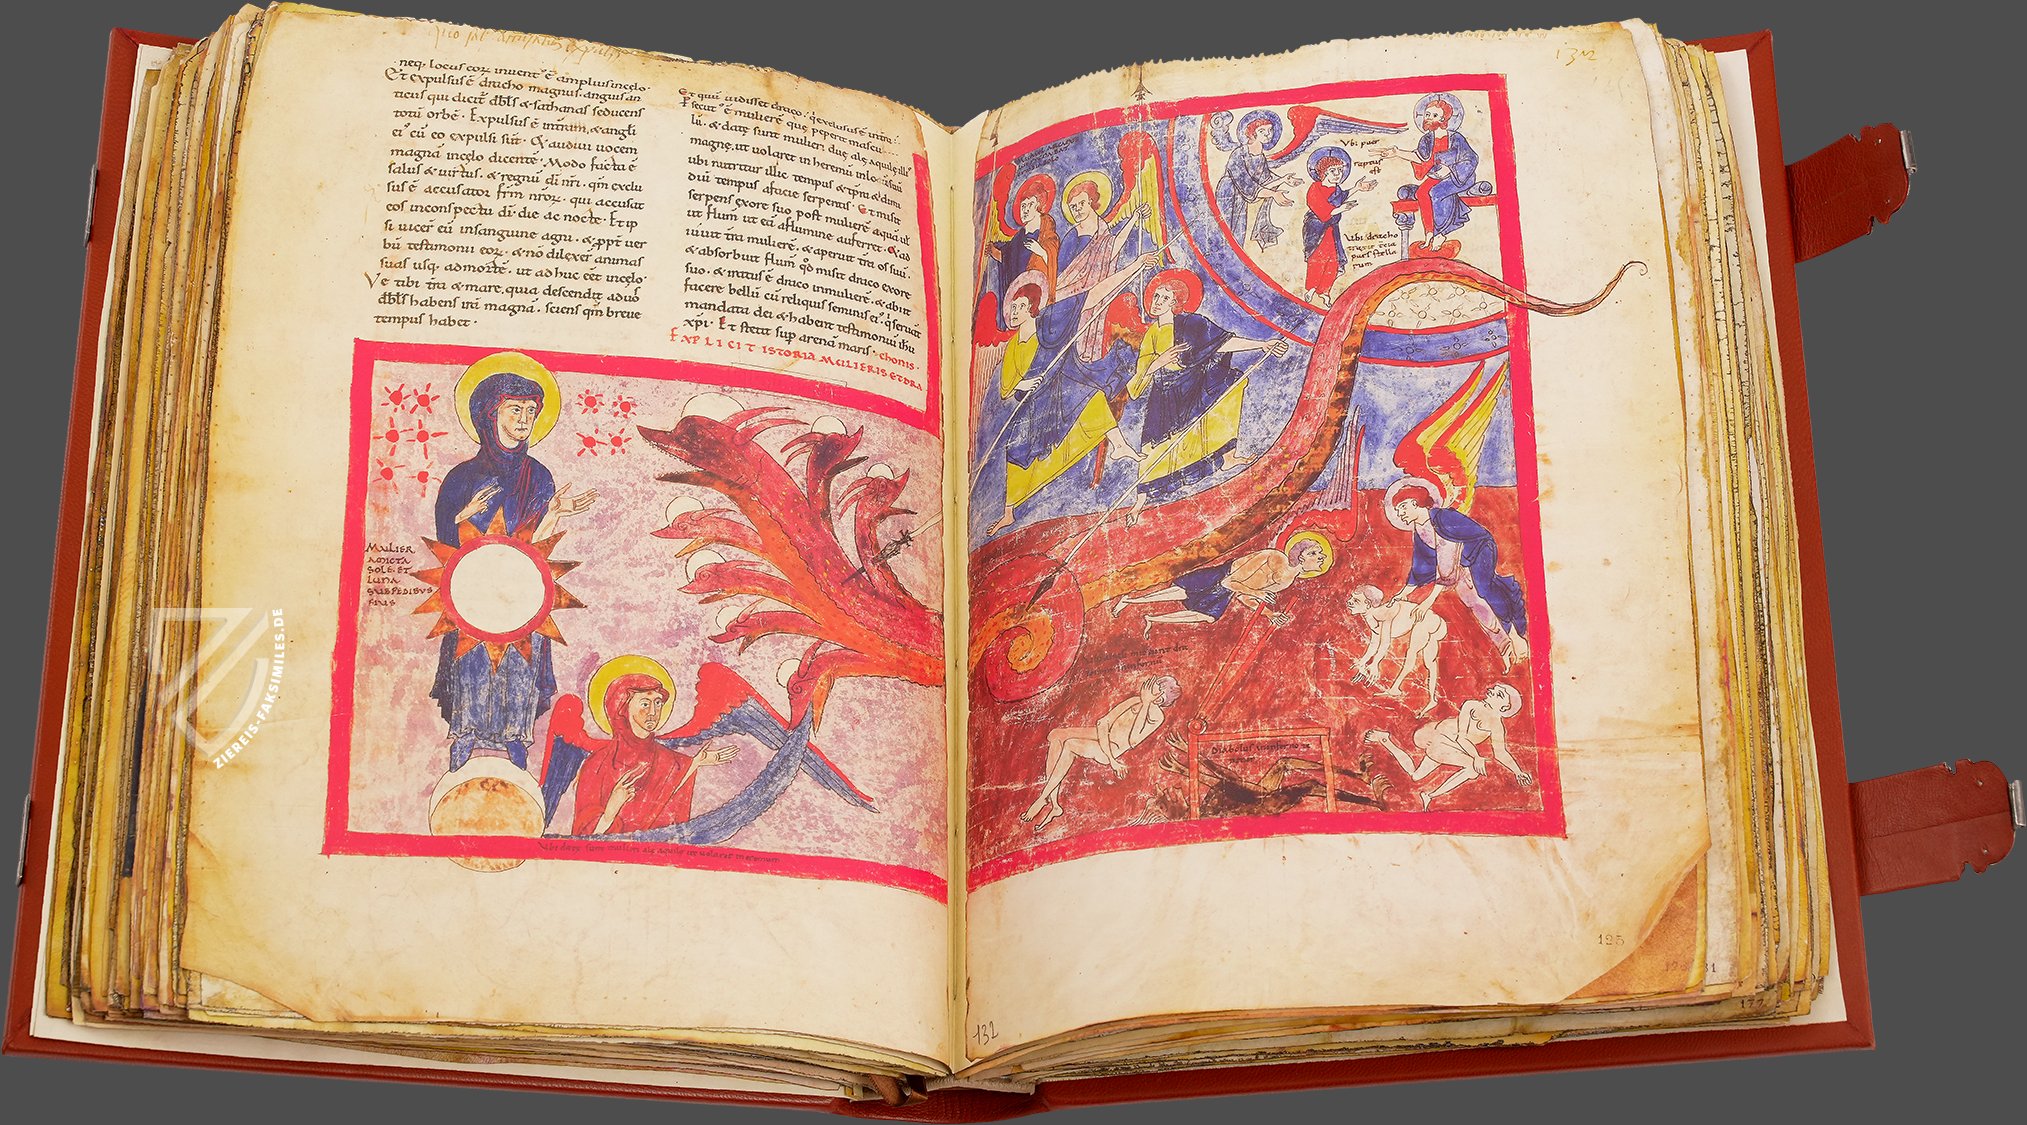 neq, locus eoꝝ invent' ē amplius incęlo·
Et expulsus ē dracho magnus· anguis an
ticus qui dicit̄ dbl̄s & sathanas seducens
totū orbē· Expulsus ē int̄ram, & angli
ei' cū eo expulsi sūt· Et audivi vocem
magnā incęlo dicentē· Modo facta ē
salus & virtus, & regnū dī nr̄i· qm̄ exclu
sus ē accusator fr̄m nr̄oꝝ· qui accusat
eos inconspectu dī· die ac nocte· Et ip
si vicer eū insanguine agni· & ꝓpt̄ ver
bū testimonii eoꝝ· & nō dilexer animas
suas usq, admortē· ut ad huc eēt incęlo·
Ve tibi tr̄a & mare, quia descendit advō
dbl̄s habens irā magnā· sciens qm̄ breve
tempus habet·
Et quū vidisset draco· q̄ exclusus ē int̄ra·
Psecut' ē mulierē que peperit mascu
lū· & datę sunt mulieri duę alę aquilę illi'
magnę, ut volaret in heremū in locū suū
ubi nutritur illic tempus & tp̄ra & dimi
diū tempus afacie serpentis· Et misit
serpens exore suo post mulierē aquā ut
ut flum̄ ut eā aflumine auferret· Et ad
iuvit tr̄a mulierē, & aperuit tr̄a os suū·
& absorbuit flum̄ qd̄ misit draco exore
suo· & iratus ē draco inmulierē· & abiit
facere bellū cū reliquis seminis ei' q̄ servāt
mandata dei & habent testimonii ihu
xp̄i· Et stetit sup arenā maris·
chonis·
EXPLICIT ISTORIA MULIERIS ET DRA
MULIER
AMICTA
SOLE· ET
LUNA
SUB PEDIBUS
EIUS
Ubi datę sunt mulieri alę aquilę ut volaret in eremum
Ubi puer
raptus
est
Ubi dracho
traxit tercia
pars stella
rum
Diabolus in inferno
132
125
132
177
ZIEREIS-FAKSIMILES.DE